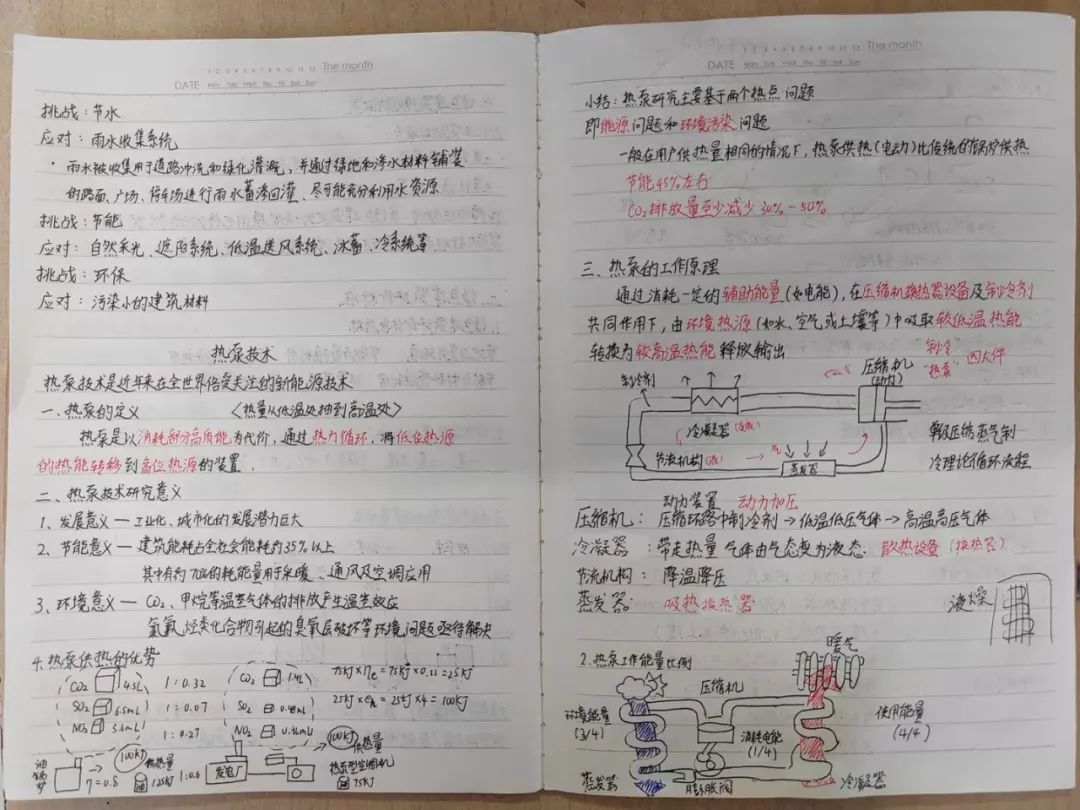 1 2 3 4 5 6 7 8 9 10 11 12 The month
DATE Mon Tue Wed Thu Fri Sat Sun
挑战：节水
应对：雨水收集系统
·雨水被收集用于道路冲洗和绿化灌溉，并通过绿地和渗水材料铺装
的路面、广场、停车场进行雨水蓄渗回灌、尽可能充分利用水资源
挑战：节能
应对：自然采光、遮阳系统、低温送风系统、冰蓄、冷系统等
挑战：环保
应对：污染小的建筑材料
热泵技术
热泵技术是近年来在全世界倍受关注的新能源技术
一、热泵的定义 〈热量从低温处抽到高温处〉
热泵是以消耗部分高质能为代价，通过热力循环，将低位热源
的热能转移到高位热源的装置．
二、热泵技术研究意义
1、发展意义—工业化、城市化的发展潜力巨大
2、节能意义—建筑能耗占全社会能耗约35%以上
其中有约70%的耗能量用于采暖、通风及空调应用
3、环境意义—CO₂、甲烷等温室气体的排放产生温室效应
氯氟烃类化合物引起的臭氧层破坏等环境问题亟待解决
4.热泵供热的优势
CO₂ 4.5L 1:0.32
SO₂ 6.5mL 1:0.07
NO₂ 3.6mL 1:0.27
CO₂
SO₂
NO₂
75KJ×ηe=75KJ×0.33=25KJ
25KJ×eh=25KJ×4=100KJ
油锅炉 η=0.8 100KJ 供热量 125KJ 1:0.6
发电厂 100KJ 供热量
热泵型空调机 75KJ
1 2 3 4 5 6 7 8 9 10 11 12 The month
DATE Mon Tue Wed Thu Fri Sat Sun
小结：热泵研究主要基于两个热点问题
即能源问题和环境污染问题
一般在用户供热量相同的情况下，热泵供热(电动)比传统的锅炉供热
节能45%左右
CO₂排放量至少减少30%-50%
三、热泵的工作原理
通过消耗一定的辅助能量(如电能)，在压缩机换热器设备及制冷剂
共同作用下，由环境热源(如水、空气或土壤等)中吸取较低温热能
转换为较高温热能释放输出：
"制冷" "热泵" 四大件
制冷剂
压缩机(动力)
冷凝器
节流机构
蒸发器
单级压缩蒸气制
冷理论循环流程
动力装置 动力加压
压缩机：压缩环路中制冷剂→低温低压气体→高温高压气体
冷凝器：带走热量 气体由气态变为液态．散热设备(换热器)
节流机构：降温降压
蒸发器：吸热换热器
2.热泵工作能量比例
暖气
压缩机
环境能量
(3/4)
消耗电能
(1/4)
使用能量
(4/4)
蒸发器
膨胀阀
冷凝器